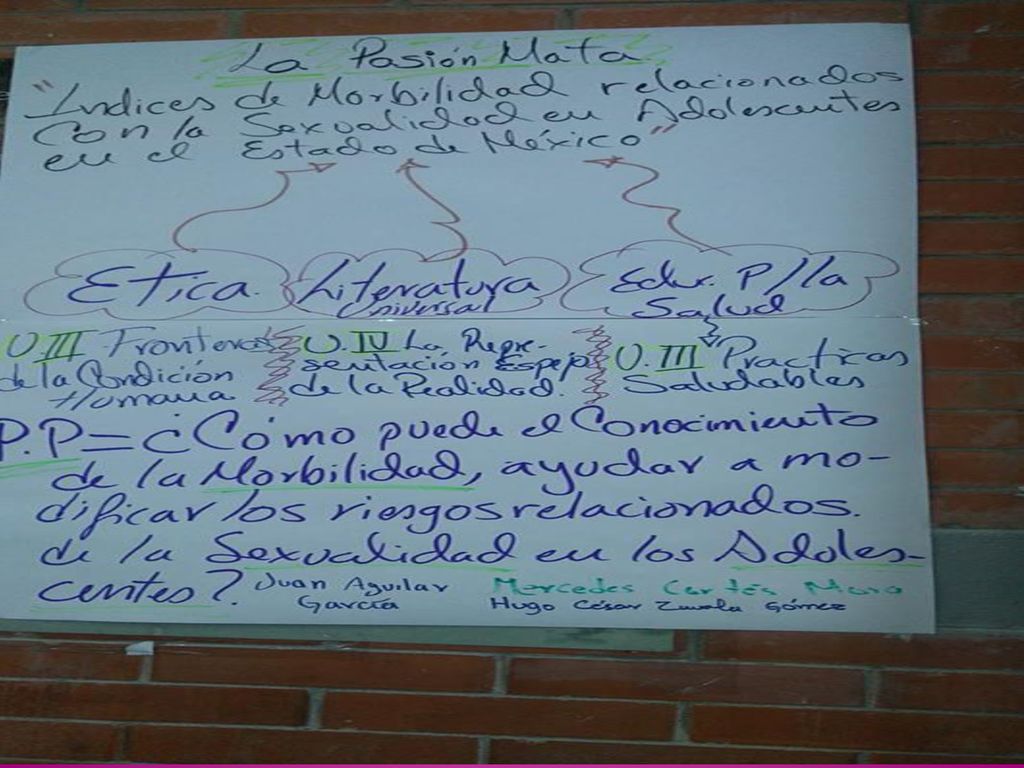 La Pasión Mata
"Indices de Morbilidad relacionados
Con la Sexualidad en Adolescentes
en el Estado de México"
Etica. Literatura Universal Educ. P/la Salud
U.III Fronteras de la Condición Humana
U.IV La Repre-
sentación Espejo
de la Realidad.
U.III Practicas
Saludables
P.P=¿Cómo puede el Conocimiento
de la Morbilidad, ayudar a mo-
dificar los riesgos relacionados.
de la Sexualidad en los Adoles-
centes?
Juan Aguilar
García
Mercedes Cortés Mora
Hugo César Zavala Gómez